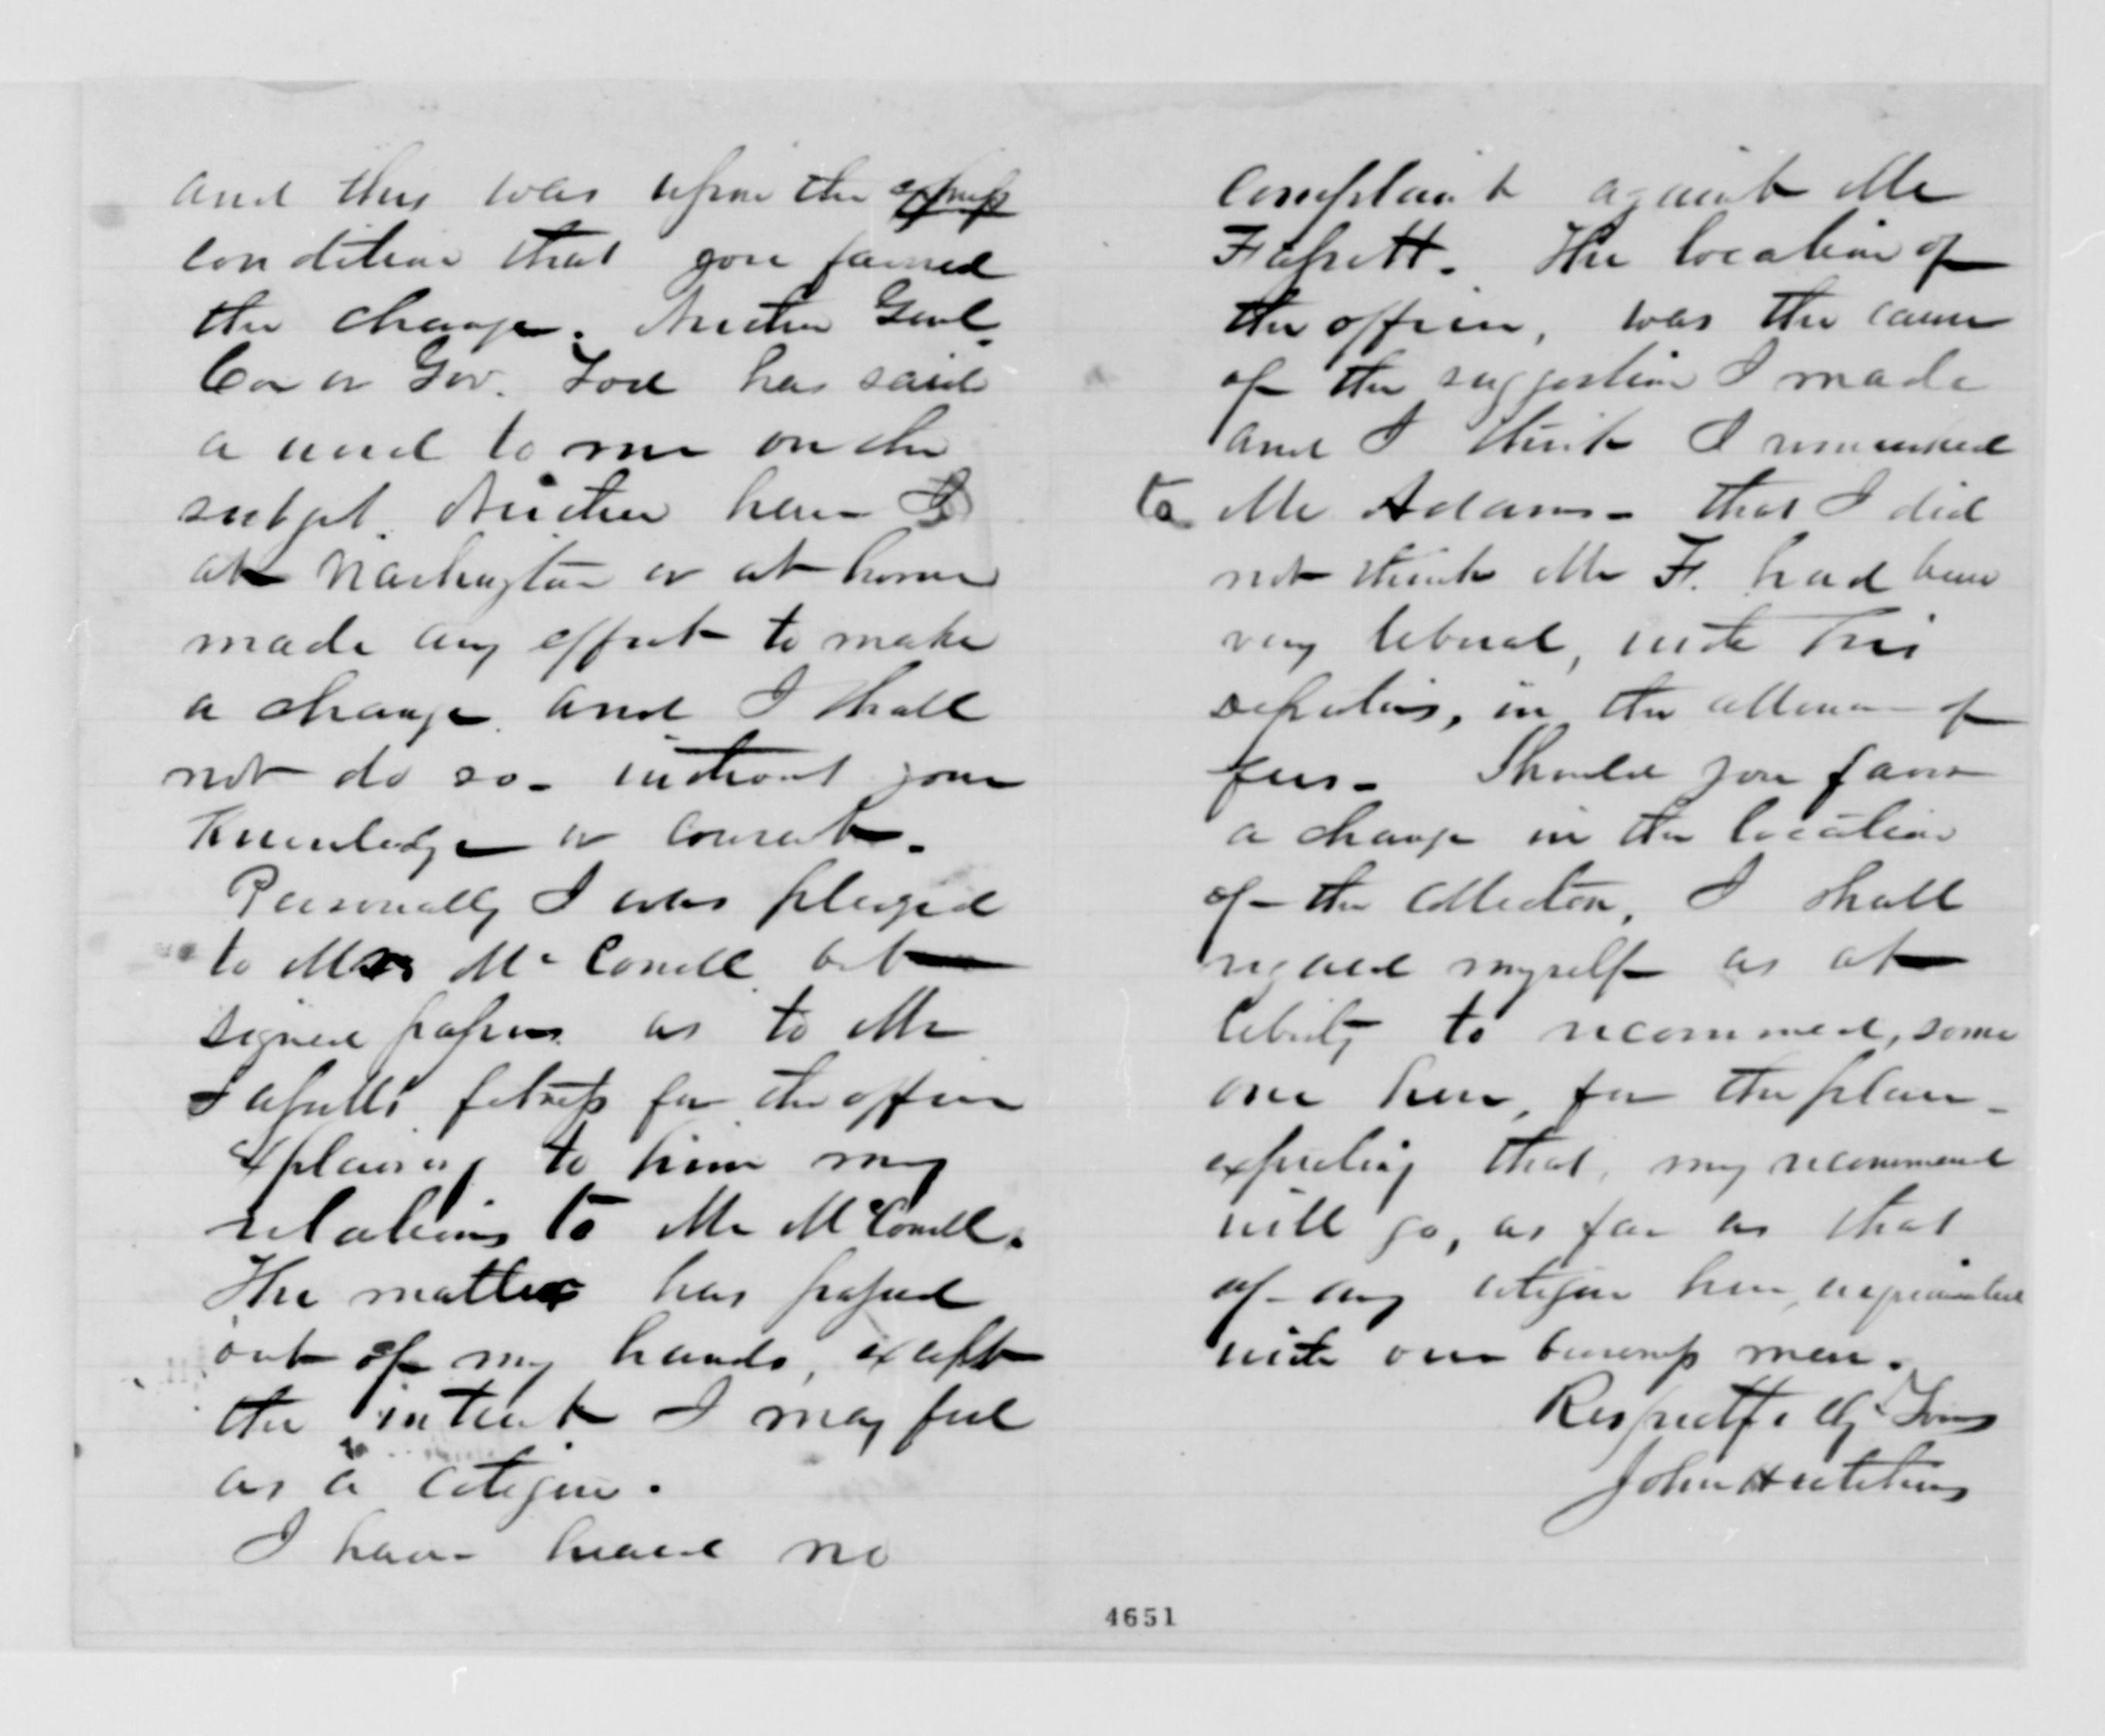 and this was upon the express
condition that you favored
the change. Neither Genl
Cox or Gov. Tod has said
a word to me on the
subject. Neither have I
at Washington or at home
made any effort to make
a change and I shall
not do so - without your
Knowledge or consent.
Personally I was pledged
to Mr McConell but
signed papers as to Mr
Fassetts fitness for the office
explaining to him my
relations to Mr McConell.
The matter has passed
out of my hands, except
the interest I may feel
as a citizen.
I have heard no
complaint against Mr
Fassett. The location of
the office, was the cause
of the suggestion I made
and I think I remarked
to Mr Adams - that I did
not think Mr F. had been
very liberal, with his
deputies, in the allowance of
fees - Should you favor
a change in the location
of the collector, I shall
regard myself as at
liberty to recommend, some
one here, for the place -
expecting that, my recommend
will go, as far as that
of any citizen here, unacquainted
with our business men.
Respectfully Yours
John Hutchins
4651